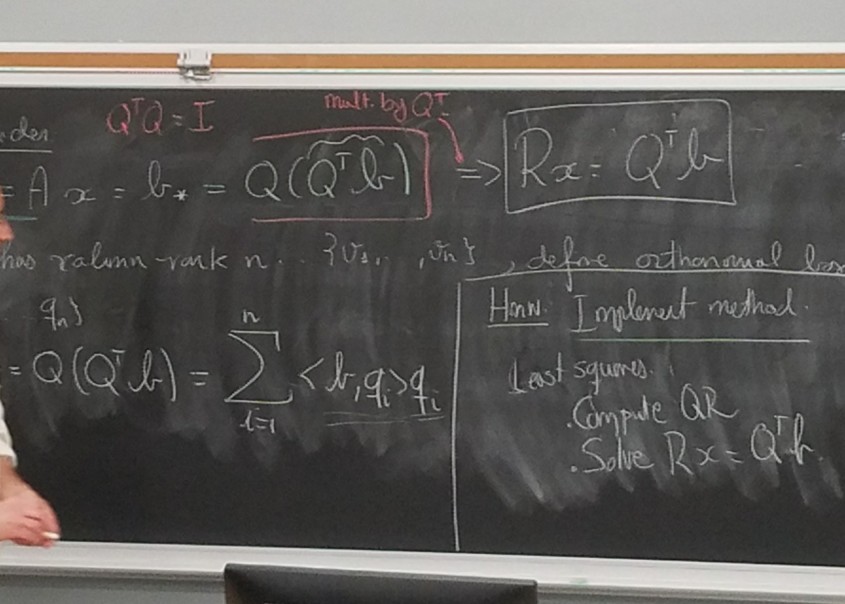 Q^T Q = I
mult. by Q^T
= A x = b_* = Q(Q^T b) => Rx = Q^T b
has column rank n. . {v_1, .. , v_n} , define orthonormal
q_n}
= Q(Q^T b) = \sum_{i=1}^{n} <b, q_i> q_i
Hmw: Implement method.
Least squares.
. Compute QR
. Solve Rx = Q^T b.